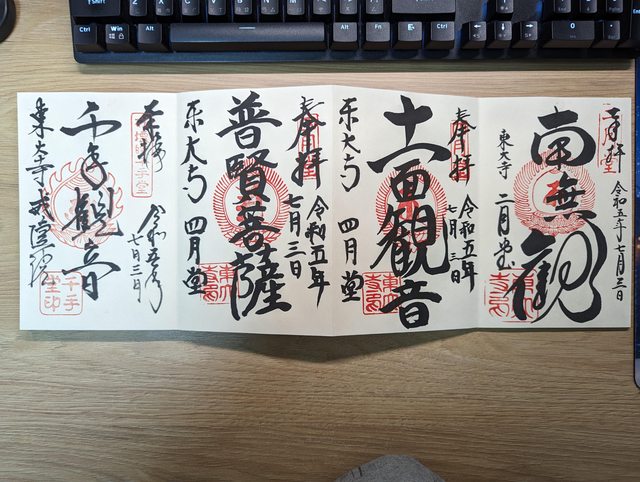 奉拝
令和五年七月三日
南無観
二月堂
東大寺
奉拝
令和五年
七月三日
十一面観音
東大寺 四月堂
奉拝
令和五年
七月三日
普賢菩薩
東大寺 四月堂
奉拝
令和五年
七月三日
千手観音
東大寺戒壇院
千手
堂印
Shift
Ctrl
Win
Alt
Alt
Fn
Ctrl
0